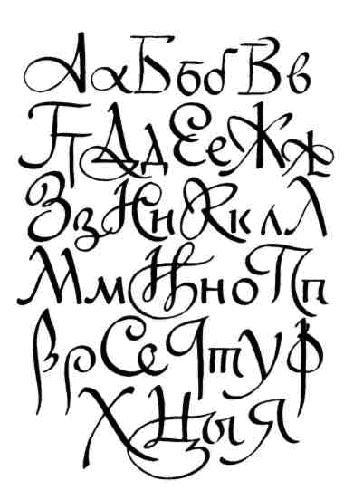 АаБббВв
ГДдЕеЖж
ЗзИиКклЛ
МмНноПп
РрСсТтуФ
ХЦыЯ